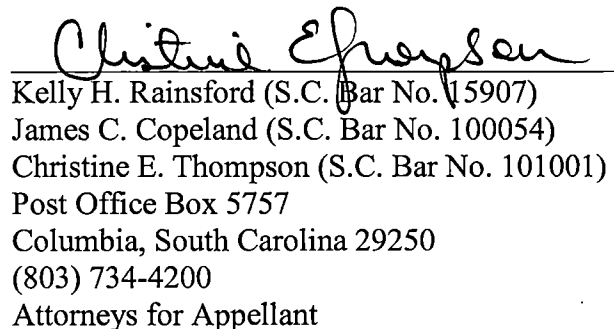 Christine E Thompson
Kelly H. Rainsford (S.C. Bar No. 15907)
James C. Copeland (S.C. Bar No. 100054)
Christine E. Thompson (S.C. Bar No. 101001)
Post Office Box 5757
Columbia, South Carolina 29250
(803) 734-4200
Attorneys for Appellant